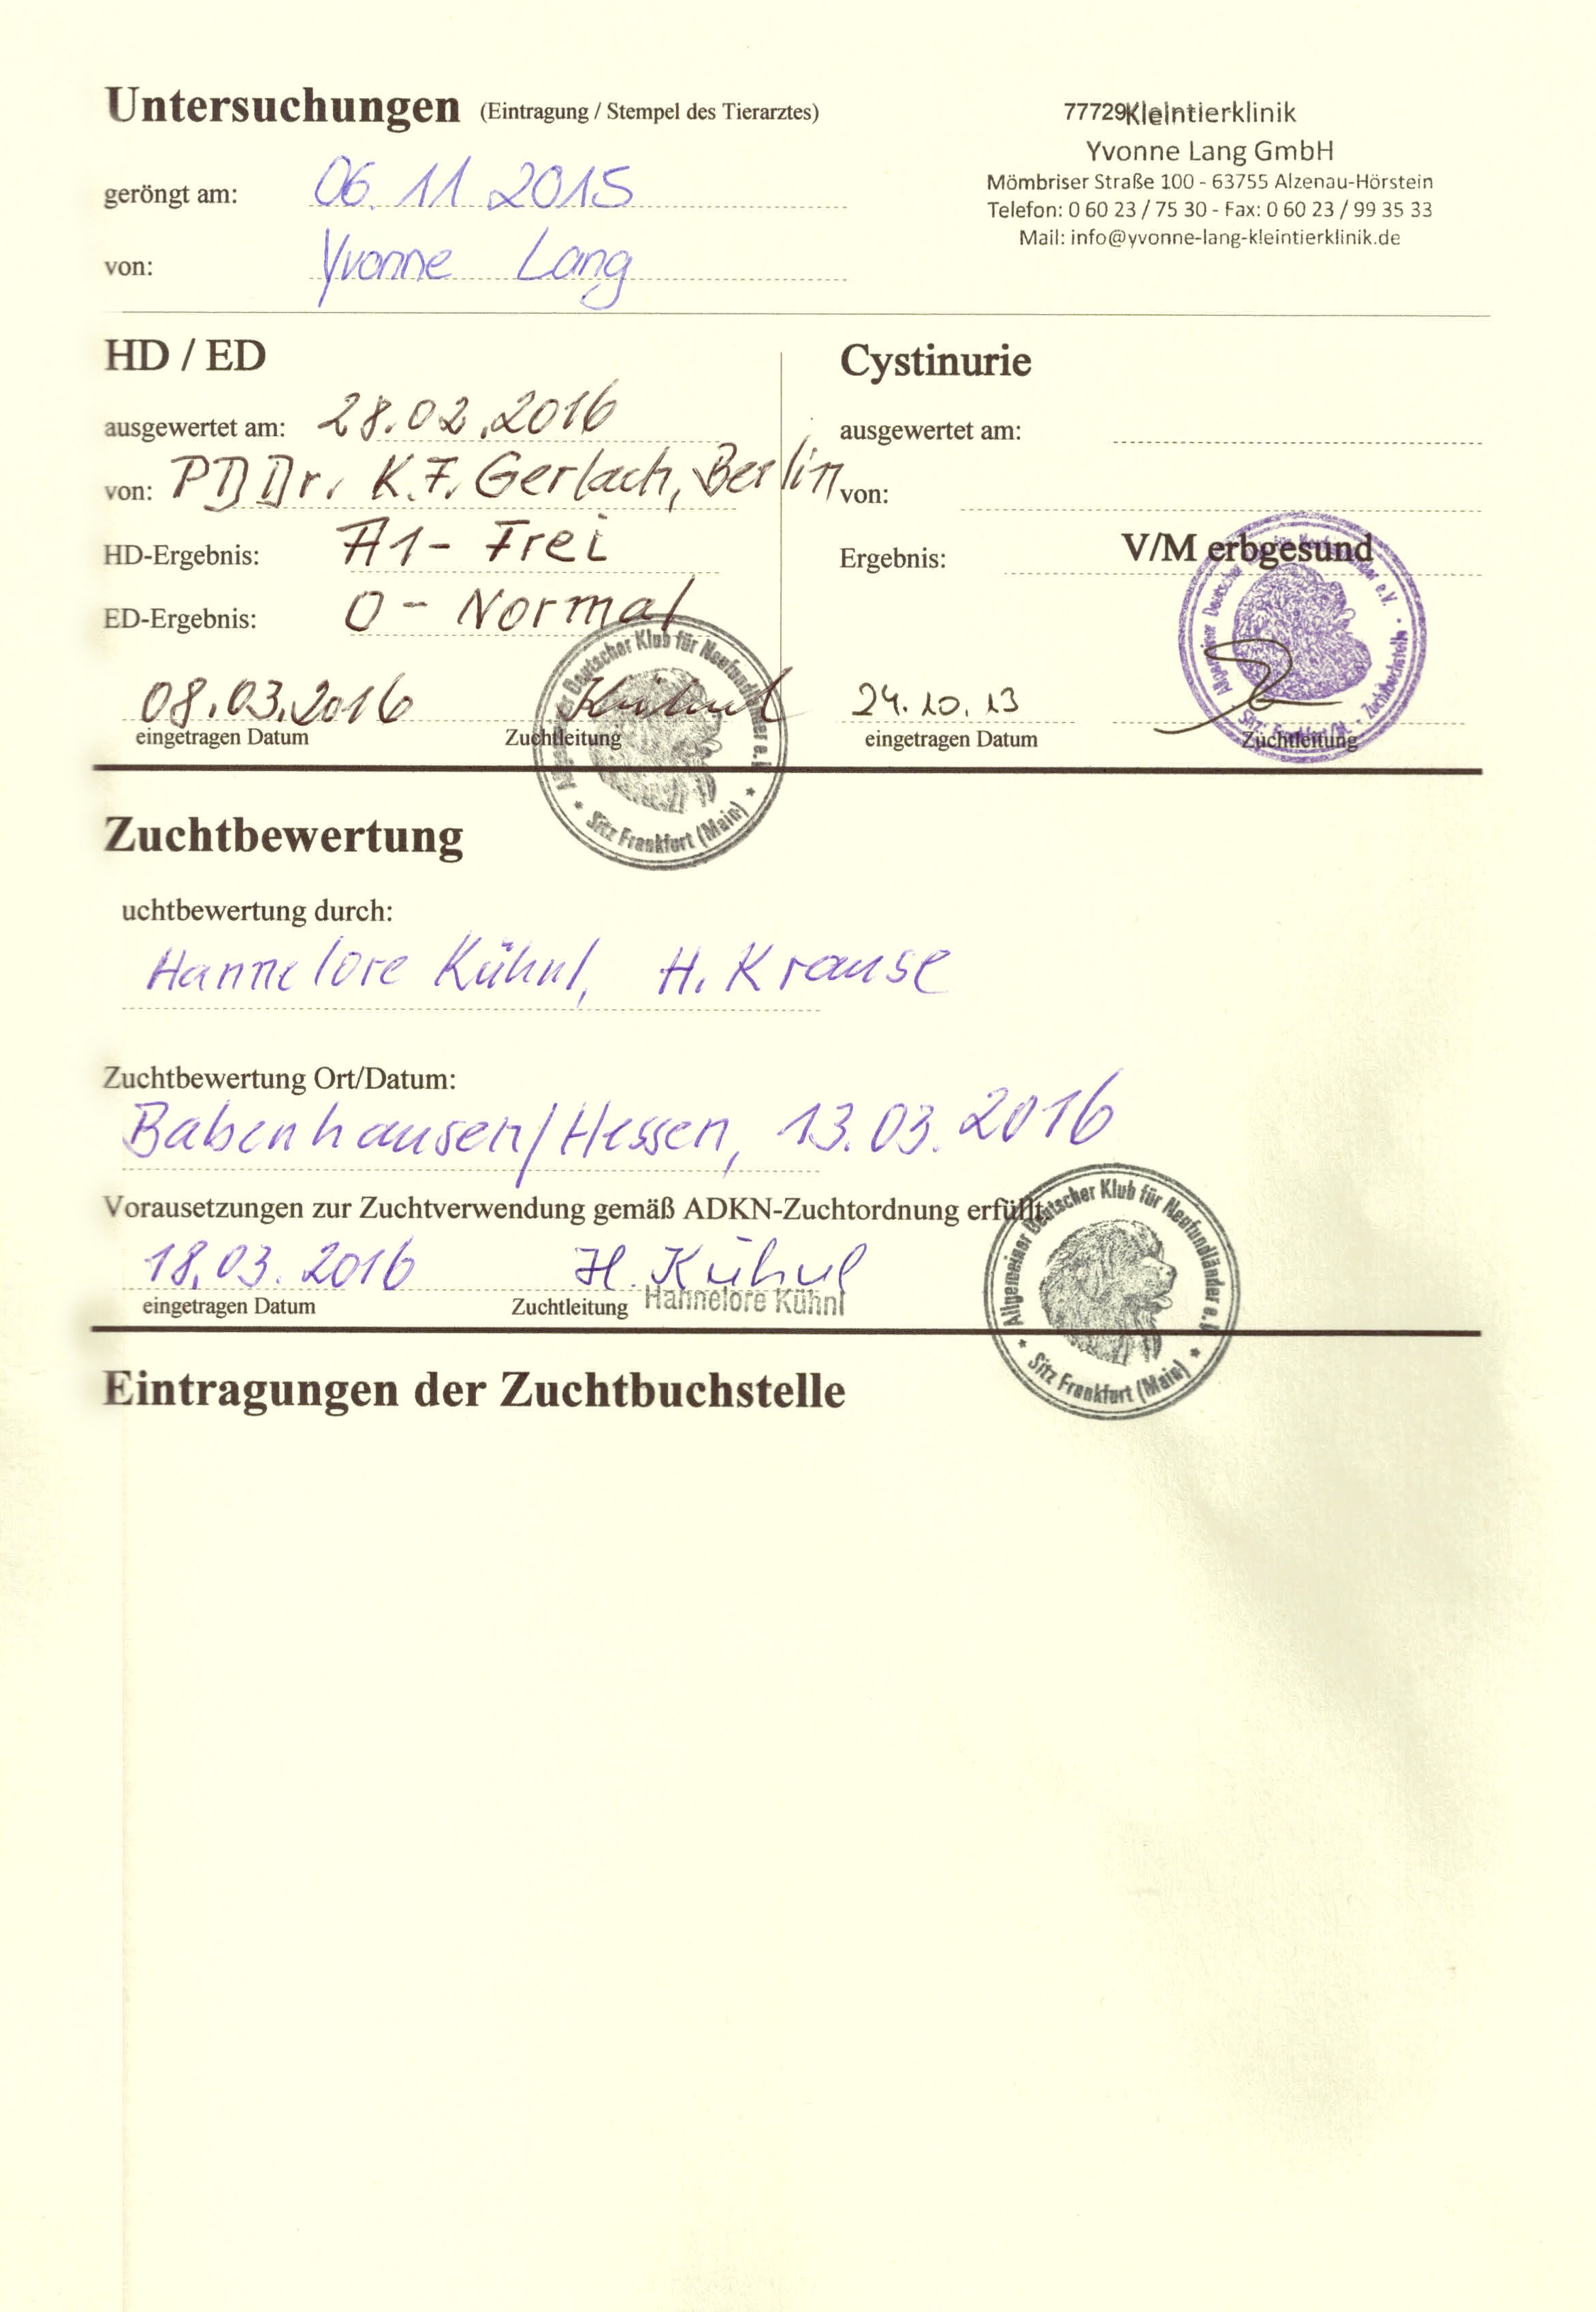 Untersuchungen (Eintragung / Stempel des Tierarztes)
77729Kleintierklinik
Yvonne Lang GmbH
Mömbriser Straße 100 - 63755 Alzenau-Hörstein
Telefon: 0 60 23 / 75 30 - Fax: 0 60 23 / 99 35 33
Mail: info@yvonne-lang-kleintierklinik.de
geröngt am: 06.11 2015
von: Yvonne Lang
HD / ED
ausgewertet am: 28.02.2016
von: PD Dr. K.F. Gerlach, Berlin
HD-Ergebnis: A1- Frei
ED-Ergebnis: 0 - Normal
08.03.2016 Kühnl
eingetragen Datum Zuchtleitung
Allgemeiner Deutscher Klub für Neufundländer e.V.
Sitz Frankfurt (Main)
Cystinurie
ausgewertet am:
von:
Ergebnis: V/M erbgesund
24.10.13
eingetragen Datum Zuchtleitung
Allgemeiner Deutscher Klub für Neufundländer e.V.
Sitz Frankfurt/M. · Zuchtbuchstelle ·
Zuchtbewertung
uchtbewertung durch:
Hannelore Kühnl, H. Krause
Zuchtbewertung Ort/Datum:
Babenhausen/Hessen, 13.03.2016
Vorausetzungen zur Zuchtverwendung gemäß ADKN-Zuchtordnung erfüllt.
18.03.2016 H. Kühnl
eingetragen Datum Zuchtleitung Hannelore Kühnl
Allgemeiner Deutscher Klub für Neufundländer e.V.
Sitz Frankfurt (Main)
Eintragungen der Zuchtbuchstelle